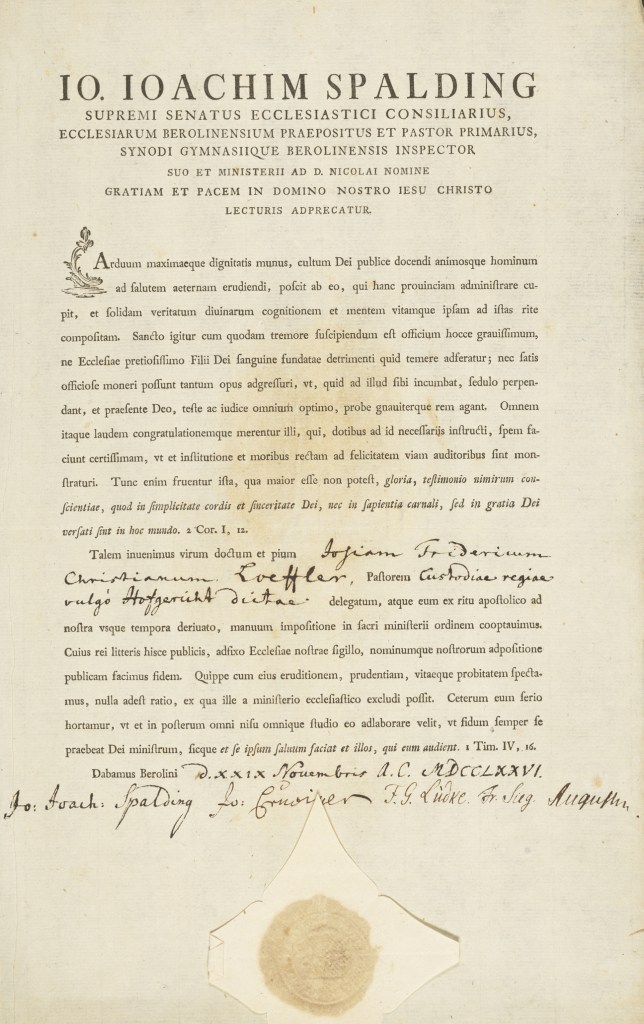 IO. IOACHIM SPALDING
SUPREMI SENATUS ECCLESIASTICI CONSILIARIUS,
ECCLESIARUM BEROLINENSIUM PRAEPOSITUS ET PASTOR PRIMARIUS,
SYNODI GYMNASIIQUE BEROLINENSIS INSPECTOR
SUO ET MINISTERII AD D. NICOLAI NOMINE
GRATIAM ET PACEM IN DOMINO NOSTRO IESU CHRISTO
LECTURIS ADPRECATUR.
Arduum maximaeque dignitatis munus, cultum Dei publice docendi animosque hominum
ad salutem aeternam erudiendi, poscit ab eo, qui hanc prouinciam administrare cu-
pit, et solidam veritatum diuinarum cognitionem et mentem vitamque ipsam ad istas rite
compositam. Sancto igitur cum quodam tremore suscipiendum est officium hocce grauissimum,
ne Ecclesiae pretiosissimo Filii Dei sanguine fundatae detrimenti quid temere adferatur; nec satis
officiose moneri possunt tantum opus adgressuri, vt, quid ad illud sibi incumbat, sedulo perpen-
dant, et praesente Deo, teste ac iudice omnium optimo, probe gnauiterque rem agant. Omnem
itaque laudem congratulationemque merentur illi, qui, dotibus ad id necessarijs instructi, spem fa-
ciunt certissimam, vt et institutione et moribus rectam ad felicitatem viam auditoribus sint mon-
straturi. Tunc enim fruentur ista, qua maior esse non potest, gloria, testimonio nimirum con-
scientiae, quod in simplicitate cordis et sinceritate Dei, nec in sapientia carnali, sed in gratia Dei
versati sint in hoc mundo. 2 Cor. I, 12.
Talem inuenimus virum doctum et pium Josiam Fridericum
Christianum Loeffler, Pastorem Custodiae regiae
vulgo Hofgericht dictae delegatum, atque eum ex ritu apostolico ad
nostra vsque tempora deriuato, manuum impositione in sacri ministerii ordinem cooptauimus.
Cuius rei litteris hisce publicis, adfixo Ecclesiae nostrae sigillo, nominumque nostrorum adpositione
publicam facimus fidem. Quippe cum eius eruditionem, prudentiam, vitaeque probitatem specta-
mus, nulla adest ratio, ex qua ille a ministerio ecclesiastico excludi possit. Ceterum eum serio
hortamur, vt et in posterum omni nisu omnique studio eo adlaborare velit, vt fidum semper se
praebeat Dei ministrum, sicque et se ipsum saluum faciat et illos, qui eum audient. 1 Tim. IV, 16.
Dabamus Berolini D. XXIX Novembris A. C. MDCCLXXVI.
Jo: Joach: Spalding Jo: F. G. Lüdke. Fr. Sieg. Augustin.